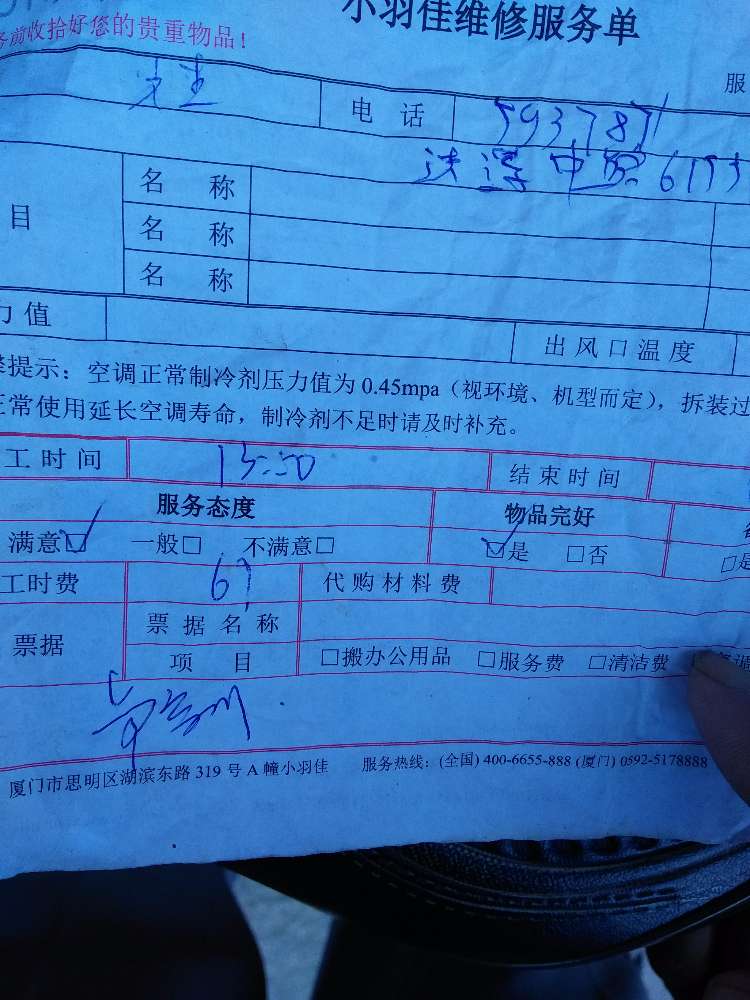 小羽佳维修服务单
务前收拾好您的贵重物品!
服
电 话
名 称
目 名 称
名 称
力值 出风口温度
提示：空调正常制冷剂压力值为 0.45mpa（视环境、机型而定），拆装过
正常使用延长空调寿命，制冷剂不足时请及时补充。
工时间 15:50 结束时间
服务态度 物品完好
满意☑ 一般□ 不满意□ ☑是 □否
工时费 代购材料费
票据 票据名称
项 目 □搬办公用品 □服务费 □清洁费
厦门市思明区湖滨东路 319 号 A 幢小羽佳 服务热线：(全国) 400-6655-888 (厦门) 0592-5178888